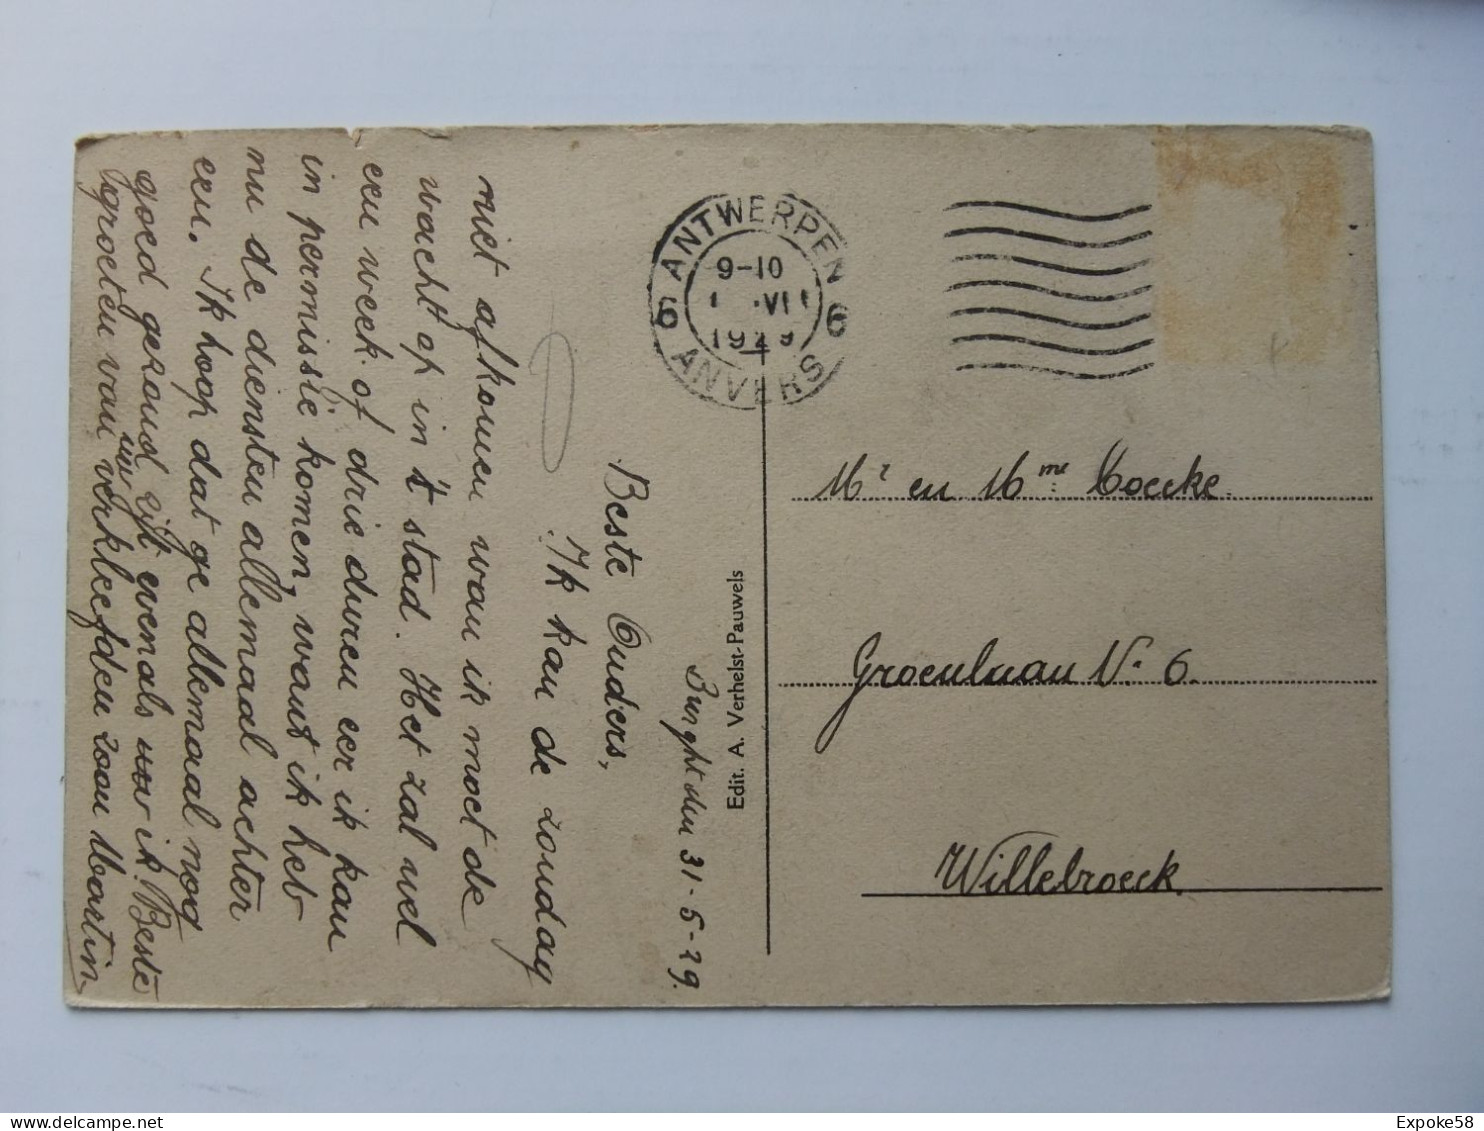 Burght den 31-5-29.
Beste Ouders,
Ik kan de zondag
niet afkomen wan ik moet de
wacht op in 't stad. Het zal wel
een week of drie duren eer ik kan
in permissie komen, want ik heb
nu de diensten allemaal achter
een. Ik hoop dat ge allemaal nog
goed gezond zijt evenals ik. Beste
groeten van uw verkleefden zoon Martin
Edit. A. Verhelst-Pauwels
ANTWERPEN
9-10
1 VI
1929
6 6
ANVERS
Mr en Mme Coecke
Groenlaan N. 6.
Willebroeck
Expoke58